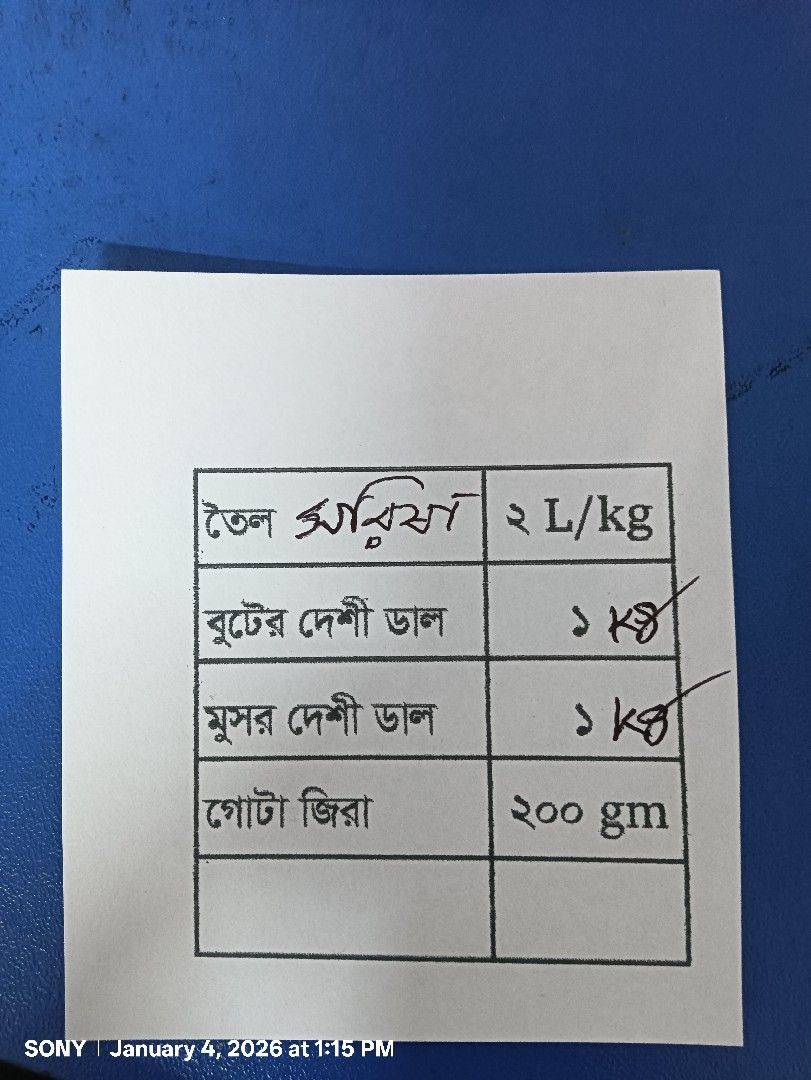 তৈল সরিষা ২ L/kg
বুটের দেশী ডাল ১ kg
মুসর দেশী ডাল ১ kg
গোটা জিরা ২০০ gm
SONY | January 4, 2026 at 1:15 PM